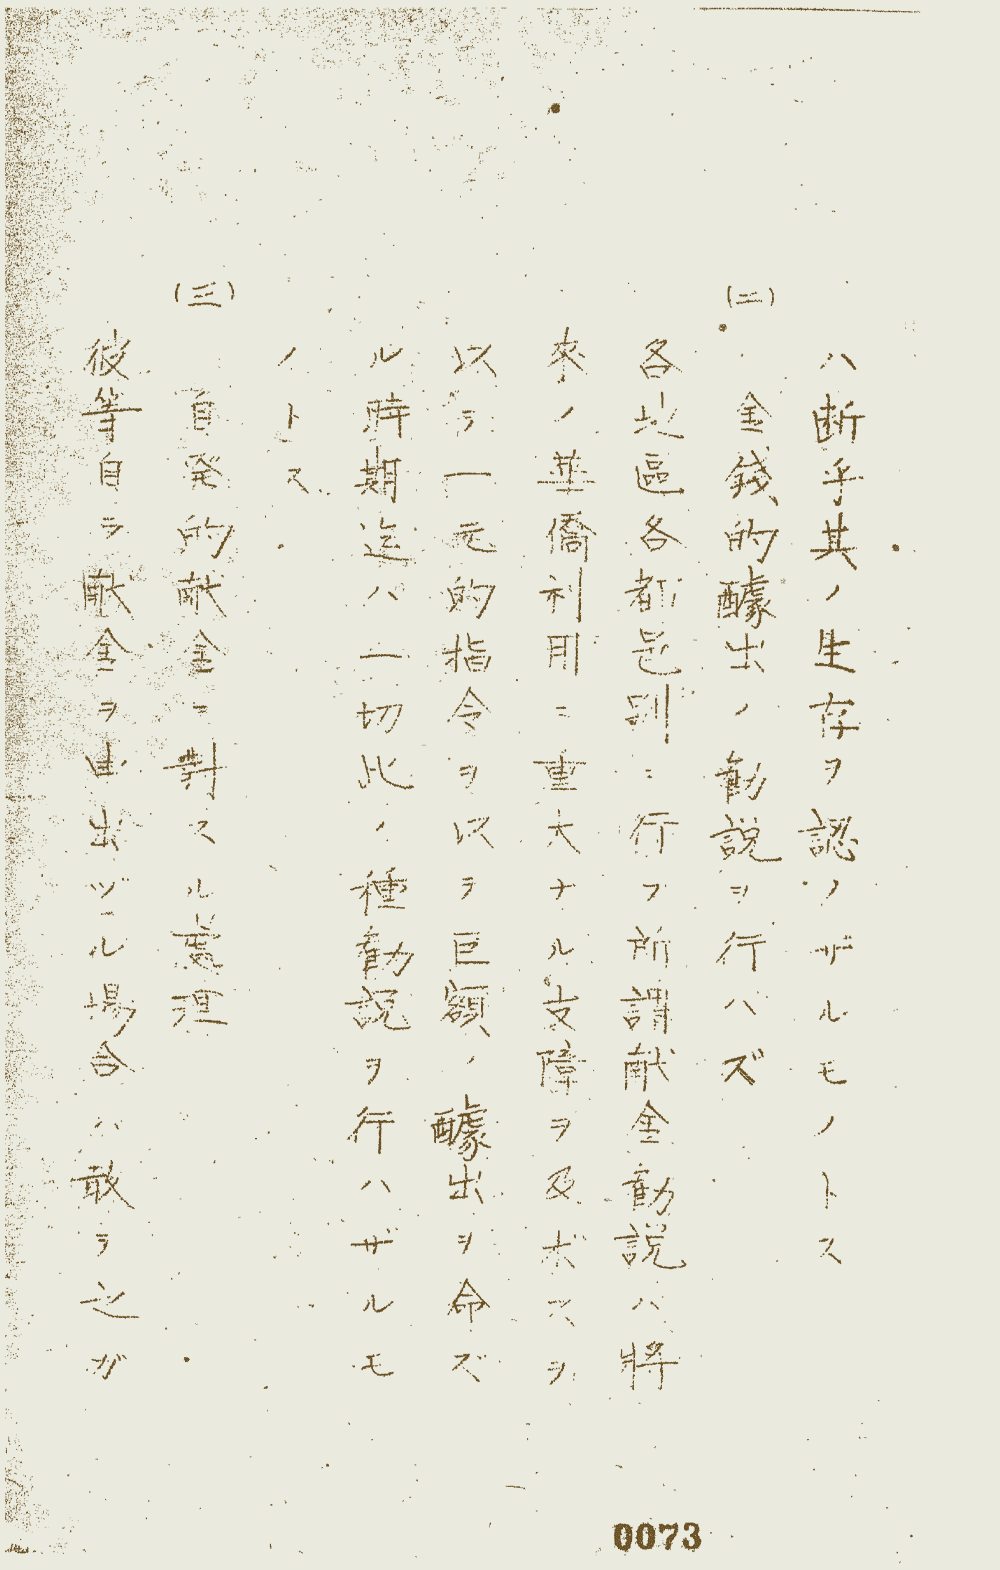 ハ断乎其ノ生存ヲ認ノザルモノトス
(二)
金錢的醵出ノ勧説ヲ行ハズ
各地區各都邑別ニ行フ所謂献金勧説ハ將
來ノ華僑利用ニ重大ナル支障ヲ及ボスヲ
以テ一元的指令ヲ以テ巨額ノ醵出ヲ命ズ
ル時期迄ハ一切此ノ種勧説ヲ行ハザルモ
ノトス
(三)
自発的献金ニ對スル處理
彼等自ラ献金ヲ申出ヅル場合ハ敢テ之ガ
0073